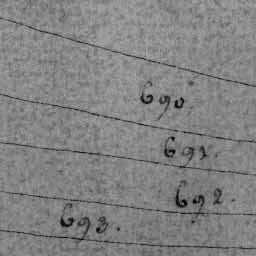 690.
691.
692.
693.